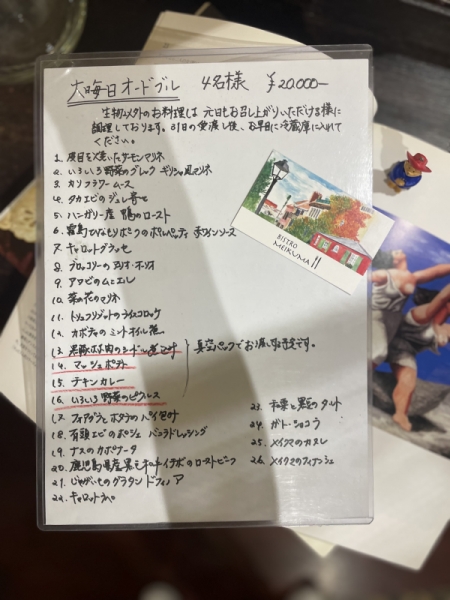 大晦日オードブル 4名様 ¥20.000-
生物以外のお料理は元日もお召し上がりいただける様に
調理しております。31日の受渡し後、お早目に冷蔵庫に入れて
ください。
1. 皮目を炙いたサーモンマリネ
2. いろいろ野菜のグレック ギリシャ風マリネ
3. カリフラワームース
4. タカエビのジュレ寄せ
5. ハンガリー産 鴨のロースト
6. 霧島ひなもりポークのポルペッティ 赤ワインソース
7. キャロットグラッセ
8. ブロッコリーのアリオ・オーリオ
9. アワビのムニエル
10. 菜の花のマリネ
11. トリュフリゾットのライスコロッケ
12. カボチャのミントオイル
13. 黒豚ホホ肉のシードル煮込み
14. マッシュポテト
15. チキンカレー
16. いろいろ野菜のピクルス
真空パックでお渡し予定です。
17. フォアグラとホタテのパイ包み
18. 有頭エビのポシェ バニラドレッシング
19. ナスのカポナータ
20. 鹿児島県産黒毛和牛イチボのローストビーフ
21. じゃがいものグラタン ドフィノア
22. キャロットラペ
23. 和栗と黒豆のタルト
24. ガトーショコラ
25. メイクマのカヌレ
26. メイクマのフィナンシェ
BISTRO
MEIKUMA